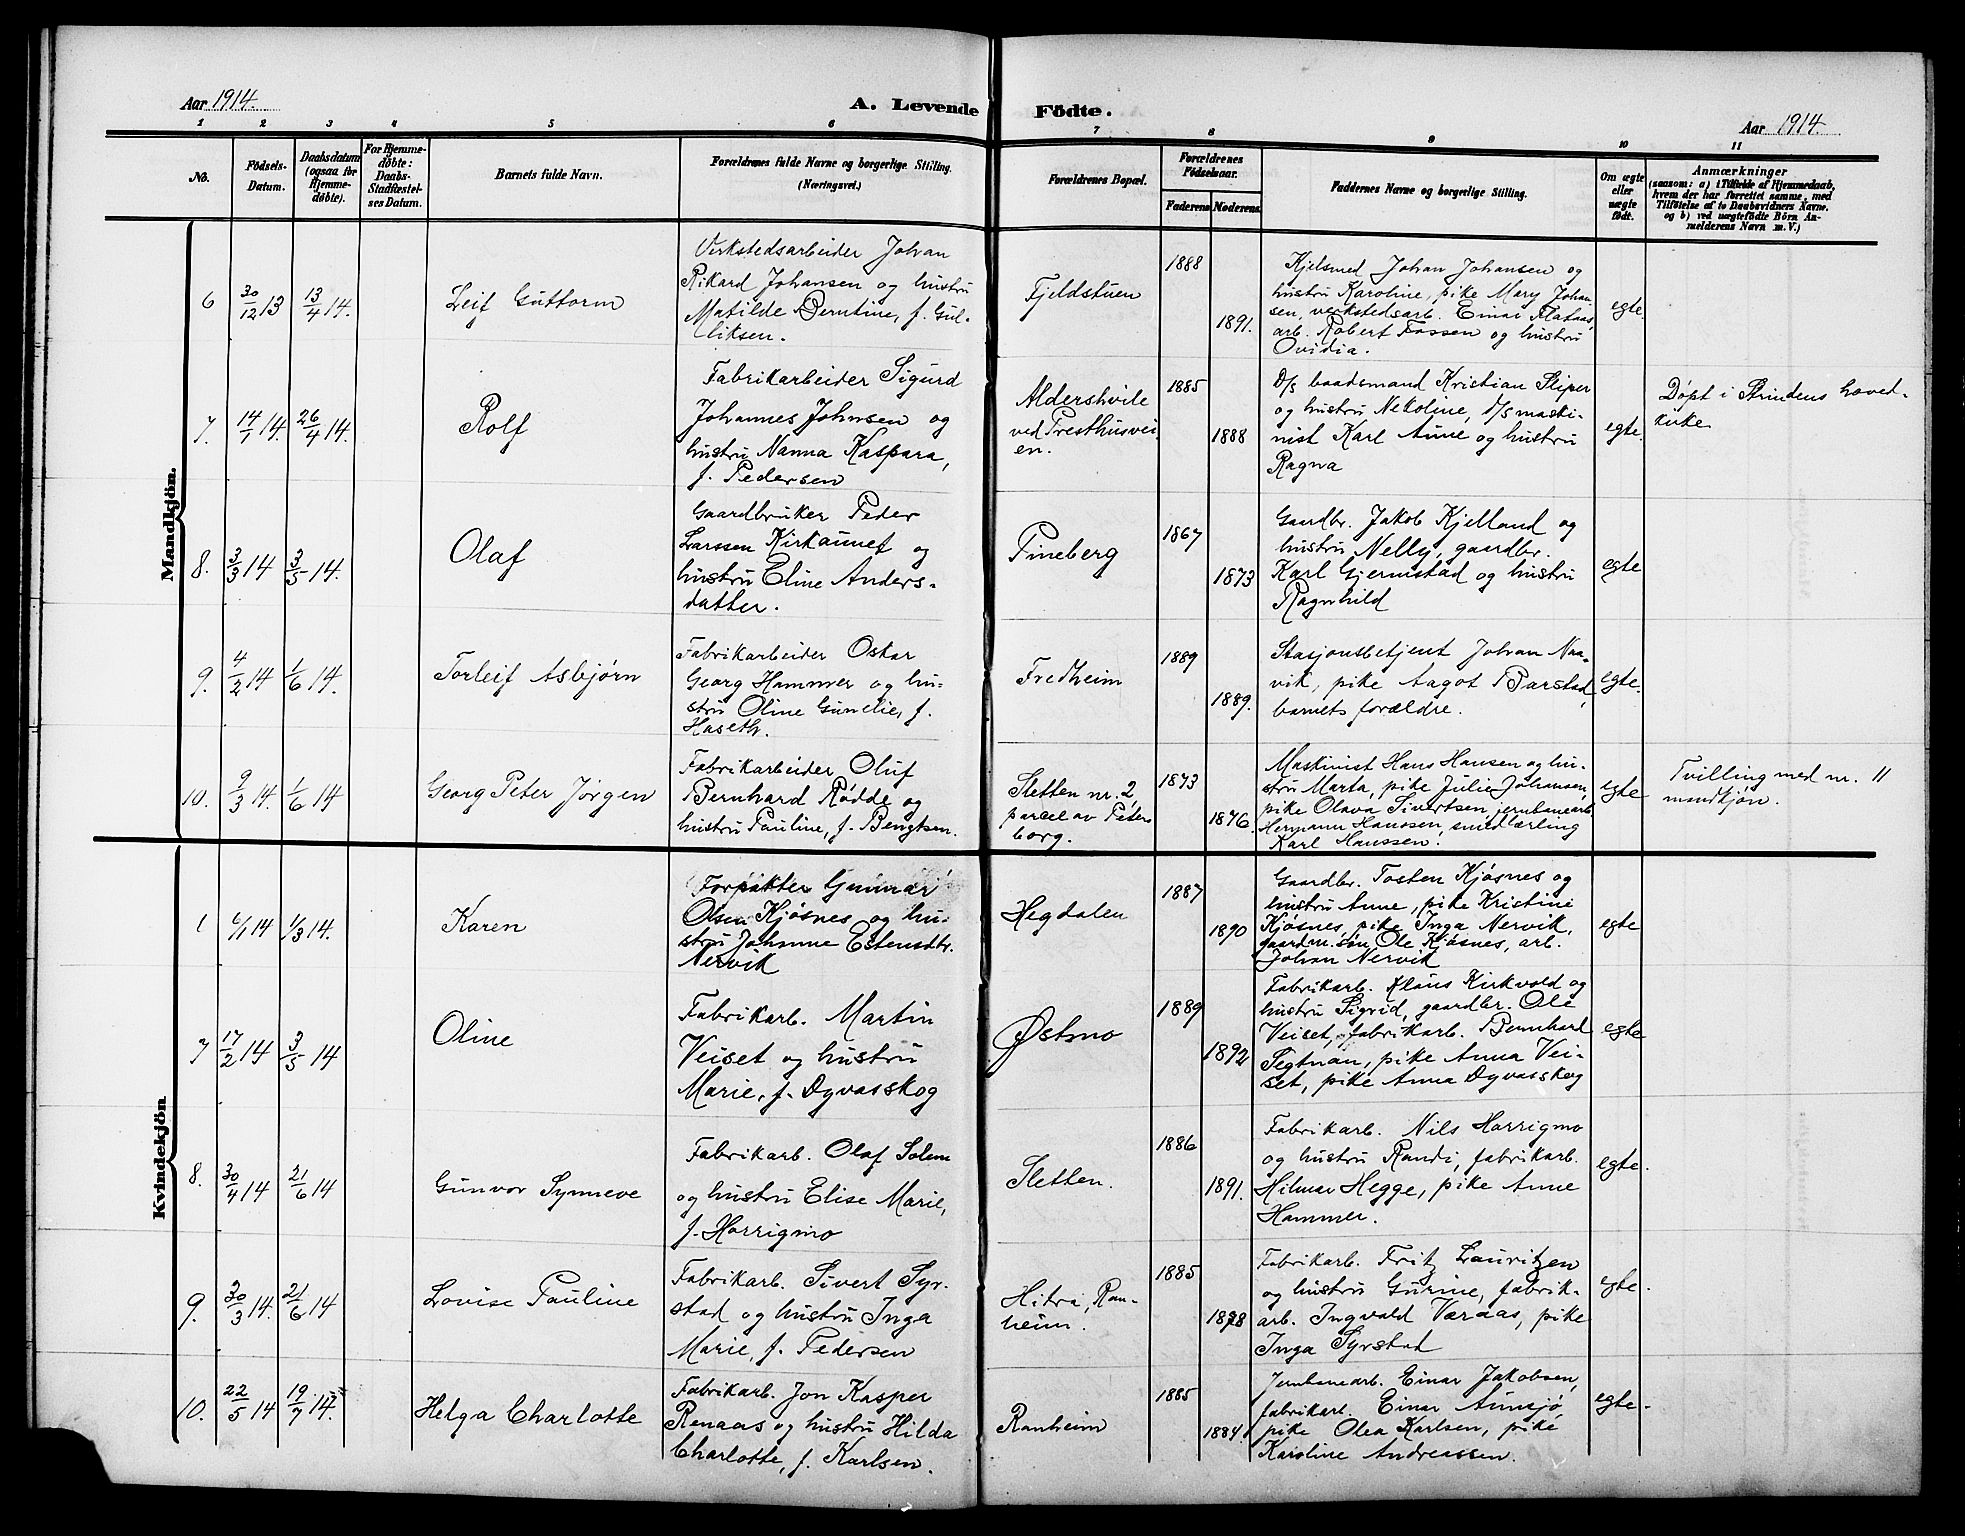 Aar 1914. A. Levende Födte. Aar 1914.
1 2 3 4 5 6 7 8 9 10 11
No.
Födsels-
Datum.
Daabsdatum
(ogsaa for
Hjemme-
döbte).
For Hjemme-
döbte:
Daabs-
Stadfæstel-
ses Datum.
Barnets fulde Navn.
Forældrenes fulde Navne og borgerlige Stilling.
(Næringsvei.)
Forældrenes Bopæl.
Forældrenes
Födselsaar.
Faderens Moderens
Faddernes Navne og borgerlige Stilling.
Om ægte
eller
uægte
födt.
Anmærkninger
(saasom: a) i Tilfælde af Hjemmedaab,
hvem der har forrettet samme, med
Tilföielse af to Daabsvidners Navne.
og b) ved uægtefödte Börn An-
melderens Navn m. V.)
Mandkjön.
6 30/12 13 13/4 14. Leif Guttorm
Verkstedsarbeider Johan
Rikard Johansen og hustru
Matilde Berntine, f. Gul-
liksen.
Fjeldstuen
1888
1891.
Kjelsmed Johan Johansen og
hustru Karoline, pike Mary Johan-
sen, verkstedsarb. Einar Flataas,
arb. Robert Fossen og hustru
Ovidia.
egte.
7. 14/1 14. 26/4 14. Rolf
Fabrikarbeider Sigurd
Johannes Johnsen og
hustru Nanna Kaspara,
f. Pedersen
Aldershvile
ved Presthusvei-
en.
1885
1888
D/s baadsmand Kristian Sliper
og hustru Nekoline, d/s maski-
nist Karl Aune og hustru
Ragna
egte.
Døpt i Strindens hoved-
kirke
8. 3/3 14 3/5 14. Olaf
Gaardbruker Peder
Larssen Kirkaunet og
hustru Eline Anders-
datter.
Pineberg
1867
1873
Gaardbr. Jakob Kjelland og
hustru Nelly, gaardbr.
Karl Gjermstad og hustru
Ragnhild
egte
9. 4/2 14 1/6 14. Torleif Asbjørn
Fabrikarbeider Oskar
Georg Hammer og hu-
stru Oline Gunelie, f.
Haseth.
Fredheim
1889
1889.
Stasjonsbetjent Johan Naa-
vik, pike Aagot Barstad,
barnets forældre.
egte.
10. 9/3 14. 1/6 14 Georg Peter Jørgen
Fabrikarbeider Oluf
Bernhard Rødde og
hustru Pauline, f. Bengtsen.
Sletten nr. 2
parcel av Peters-
borg.
1873
1876.
Maskinist Hans Hansen og hu-
stru Marta, pike Julie Johansen,
pike Olava Sivertsen, jernbanearb.
Hermann Hanssen, smedlærling
Karl Hanssen.
egte
Tvilling med nr. 11
mandkjøn.
Kvindekjön
1 6/1 14 1/3 14. Karen
Forpakter Gunnar
Olsen Kjøsnes og hu-
stru Johanne Estensdtr.
Nervik
Hegdalen
1887
1890
Gaardbr. Tosten Kjøsnes og
hustru Anne, pike Kristine
Kjøsnes, pike Inga Nervik,
gaardm. søn Ole Kjøsnes, arb.
Johan Nervik
egte
7 17/2 14 3/5 14 Oline
Fabrikarb. Martin
Veiset og hustru
Marie, f. Dyvasskog
Østmo
1889
1892
Fabrikarb. Klaus Kirkvold og
hustru Sigrid, gaardbr. Ole
Veiset, fabrikarb. Bernhard
Segtnan, pike Anna Vei-
set, pike Anna Dyvasskog
egte
8. 30/4 14 21/6 14 Gunvor Synneve
Fabrikarb. Olaf Solem
og hustru Elise Marie,
f. Horrigmo
Sletten.
1886
1891.
Fabrikarb. Nils Horrigmo
og hustru Randi, fabrikarb.
Hilmar Hegge, pike Anne
Hammer.
egte.
9. 30/3 14. 21/6 14 Lovise Pauline
Fabrikarb. Sivert Syr-
stad og hustru Inga
Marie, f. Pedersen
Hitra, Ran-
heim.
1885
1878
Fabrikarb. Fritz Lauritzen
og hustru Gurine, fabrik-
arb. Ingvald Væraas, pike
Inga Syrstad
egte.
10. 22/5 14 19/7 14. Helga Charlotte
Fabrikarb. Jon Kasper
Renaas og hustru Hilda
Charlotte, f. Karlsen.
Ranheim
1885
1884.
Jernbanearb. Einar Jakobsen,
fabrikarb. Einar Aunsjø,
pike Olea Karlsen, pike
Karoline Andreassen.
egte.